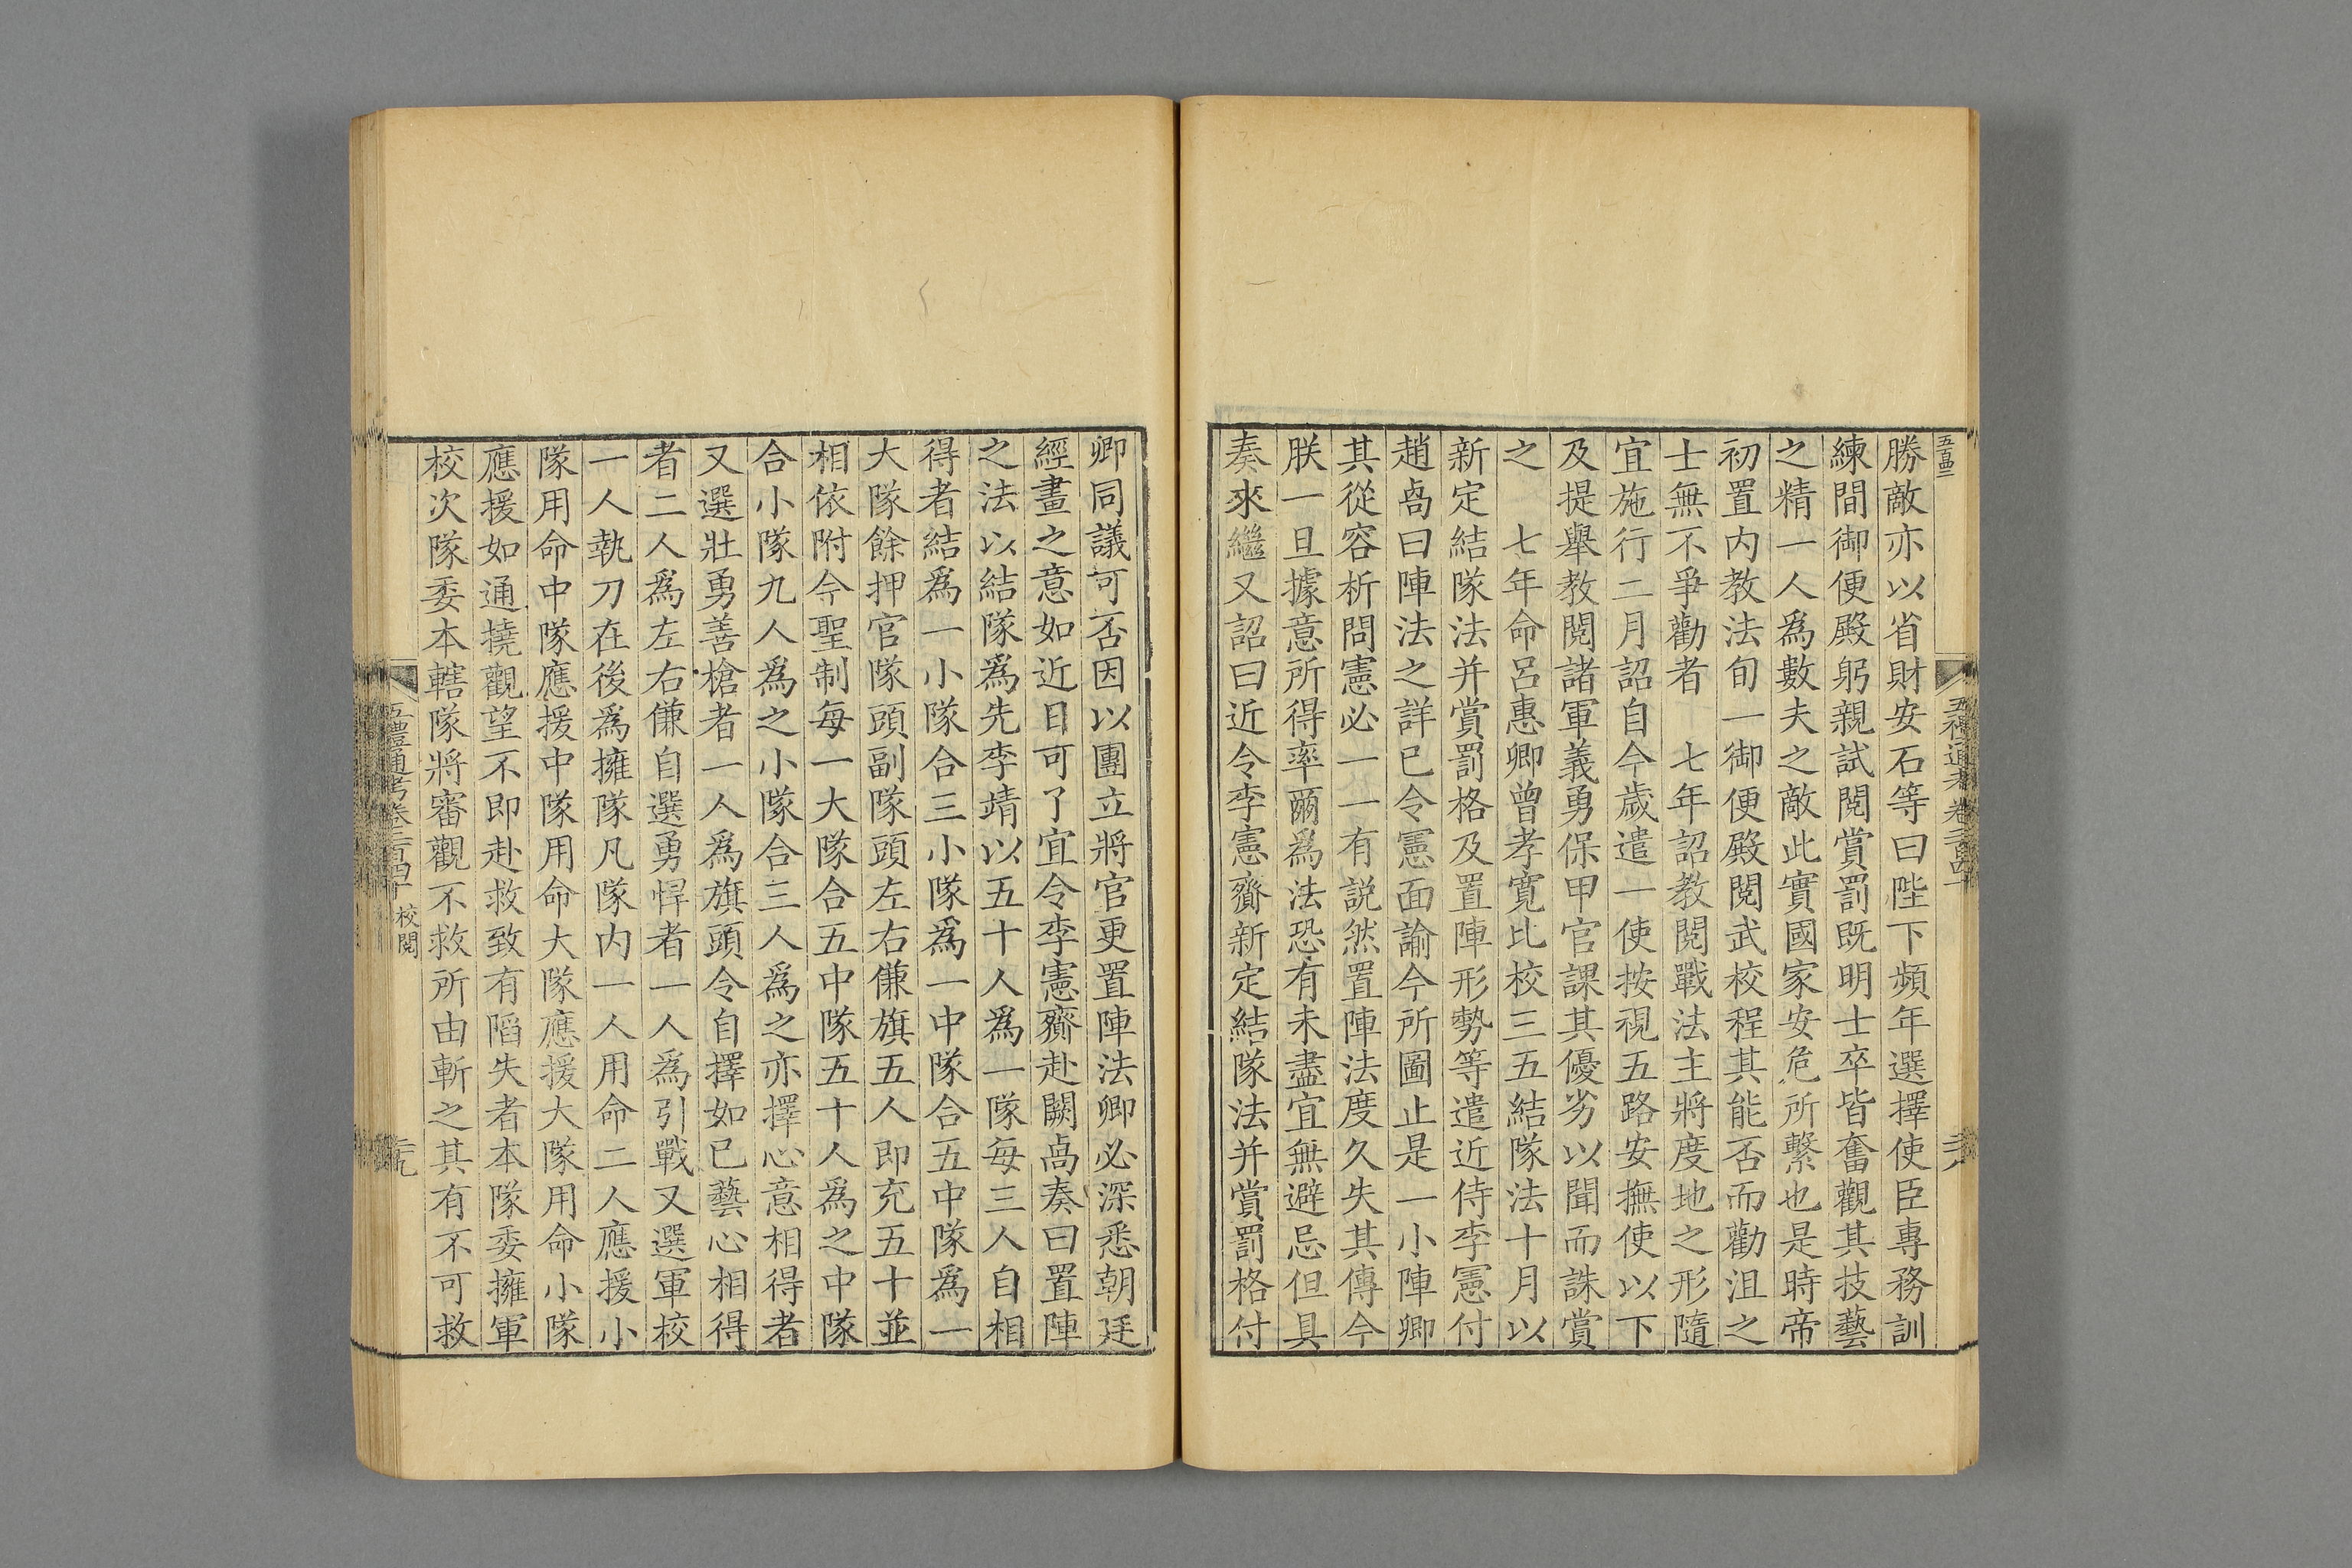 勝敵亦以省財安石等曰陛下頻年選擇使臣專務訓
練間御便殿躬親試閱賞罰既明士卒皆奮觀其技藝
之精一人爲數夫之敵此實國家安危所繫也是時帝
初置内教法旬一御便殿閱武校程其能否而勸沮之
士無不爭勸者　七年詔教閱戰法主將度地之形隨
宜施行二月詔自今歲遣一使按視五路安撫使以下
及提舉教閱諸軍義勇保甲官課其優劣以聞而誅賞
之　七年命呂惠卿曾孝寬比校三五結隊法十月以
新定結隊法并賞罰格及置陣形勢等遣近侍李憲付
趙卨曰陣法之詳已令憲面諭今所圖止是一小陣卿
其從容析問憲必一一有説然置陣法度久失其傳今
朕一旦據意所得率爾爲法恐有未盡宜無避忌但具
奏來繼又詔曰近令李憲齎新定結隊法并賞罰格付
卿同議可否因以團立將官更置陣法卿必深悉朝廷
經畫之意如近日可了宜令李憲齎赴闕卨奏曰置陣
之法以結隊爲先李靖以五十人爲一隊每三人自相
得者結爲一小隊合三小隊爲一中隊合五中隊爲一
大隊餘押官隊頭副隊頭左右傔旗五人即充五十並
相依附今聖制每一大隊合五中隊五十人爲之中隊
合小隊九人爲之小隊合三人爲之亦擇心意相得者
又選壯勇善槍者一人爲旗頭令自擇如已藝心相得
者二人爲左右傔自選勇悍者一人爲引戰又選軍校
一人執刀在後爲擁隊凡隊内一人用命二人應援小
隊用命中隊應援中隊用命大隊應援大隊用命小隊
應援如逋撓觀望不即赴救致有陷失者本隊委擁軍
校次隊委本轄隊將審觀不救所由斬之其有不可救
五禮通考卷二百四十　校閱　二十九